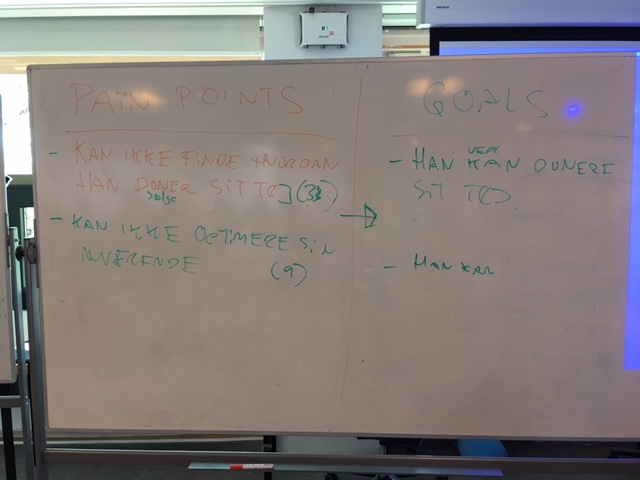 PAIN POINTS
- KAN IKKE FINDE HVORDAN
HAN DONER SIT TØJ (3)
- KAN IKKE OPTIMERE SIN
NUVERENDE (9)
GOALS
- HAN KAN DONERE
SIT TØJ
- HAN KAN